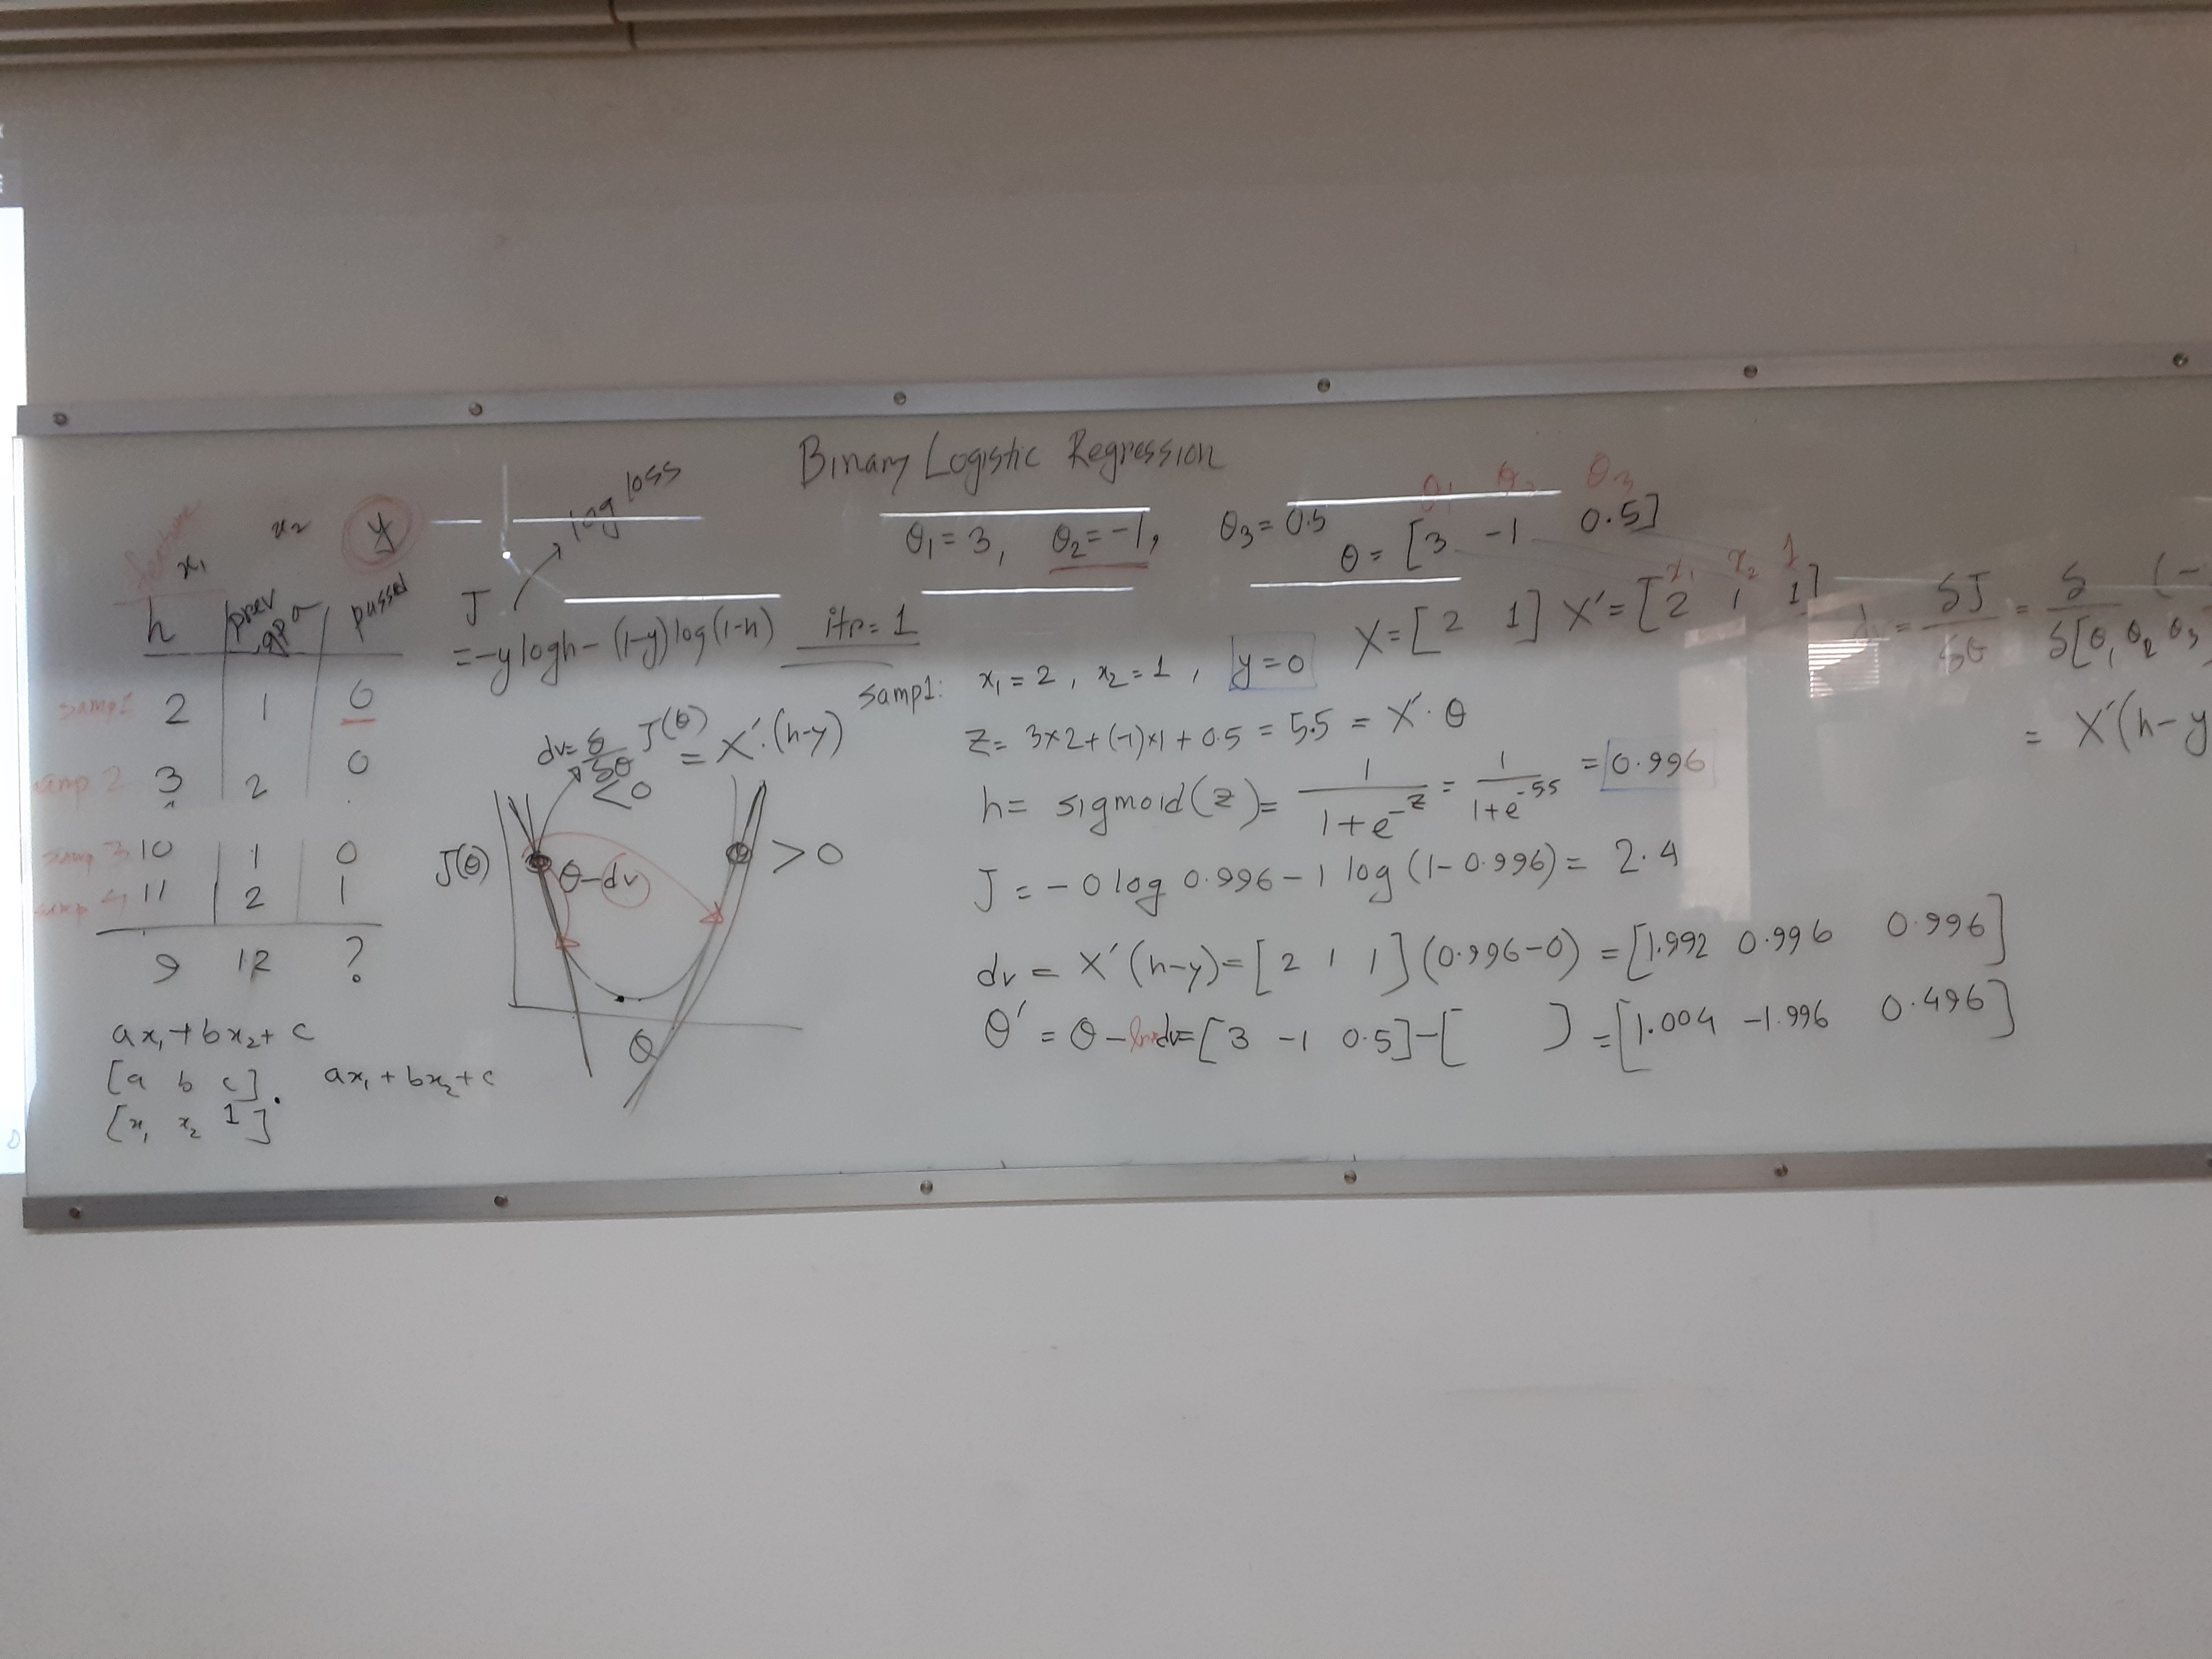 Binary Logistic Regression
feature
x₁ x₂ y
h | prev gpa | passed
samp1 2 | 1 | 0
samp 2 3 | 2 | 0
samp 3 10 | 1 | 0
samp 4 11 | 2 | 1
9 12 ?
ax₁+bx₂+c
[a b c] . ax₁+bx₂+c
[x₁ x₂ 1]
log loss
J
=-y log h - (1-y) log (1-h)
dv= δ/δθ J(θ) = X′.(h-y)
<0
J(θ)
θ-dv
>0
θ
θ₁=3, θ₂=-1, θ₃=0.5
θ₁ θ₂ θ₃
θ= [3 -1 0.5]
itr=1
x₁ x₂ 1
X=[2 1] X′=[2 1 1]
samp1: x₁=2, x₂=1, y=0
z= 3×2+(-1)×1+0.5 = 5.5 = X′.θ
h= sigmoid(z)= 1/(1+e^-z) = 1/(1+e^-5.5) = 0.996
J = -0 log 0.996 - 1 log (1-0.996) = 2.4
dv = X′(h-y)=[2 1 1](0.996-0) = [1.992 0.996 0.996]
θ′ = θ - dv=[3 -1 0.5]-[ ] =[1.004 -1.996 0.496]
= δJ/δθ = δ/δ[θ₁ θ₂ θ₃ (-
= X′(h-y